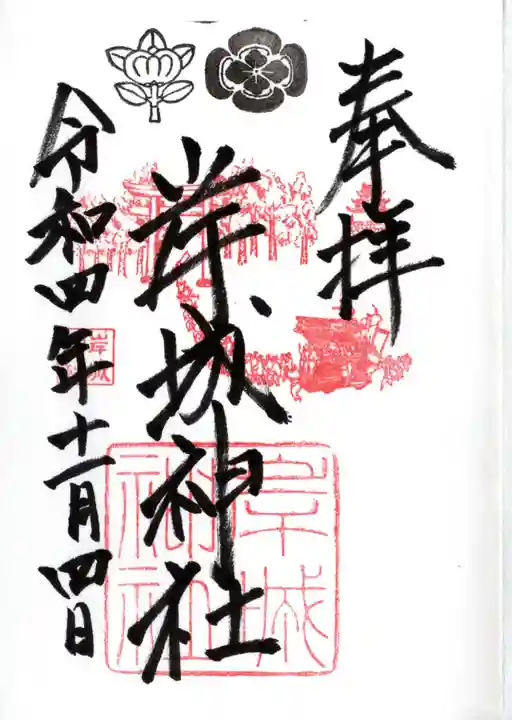 奉拝
岸城神社
令和四年十一月四日
岸城
神社
岸城